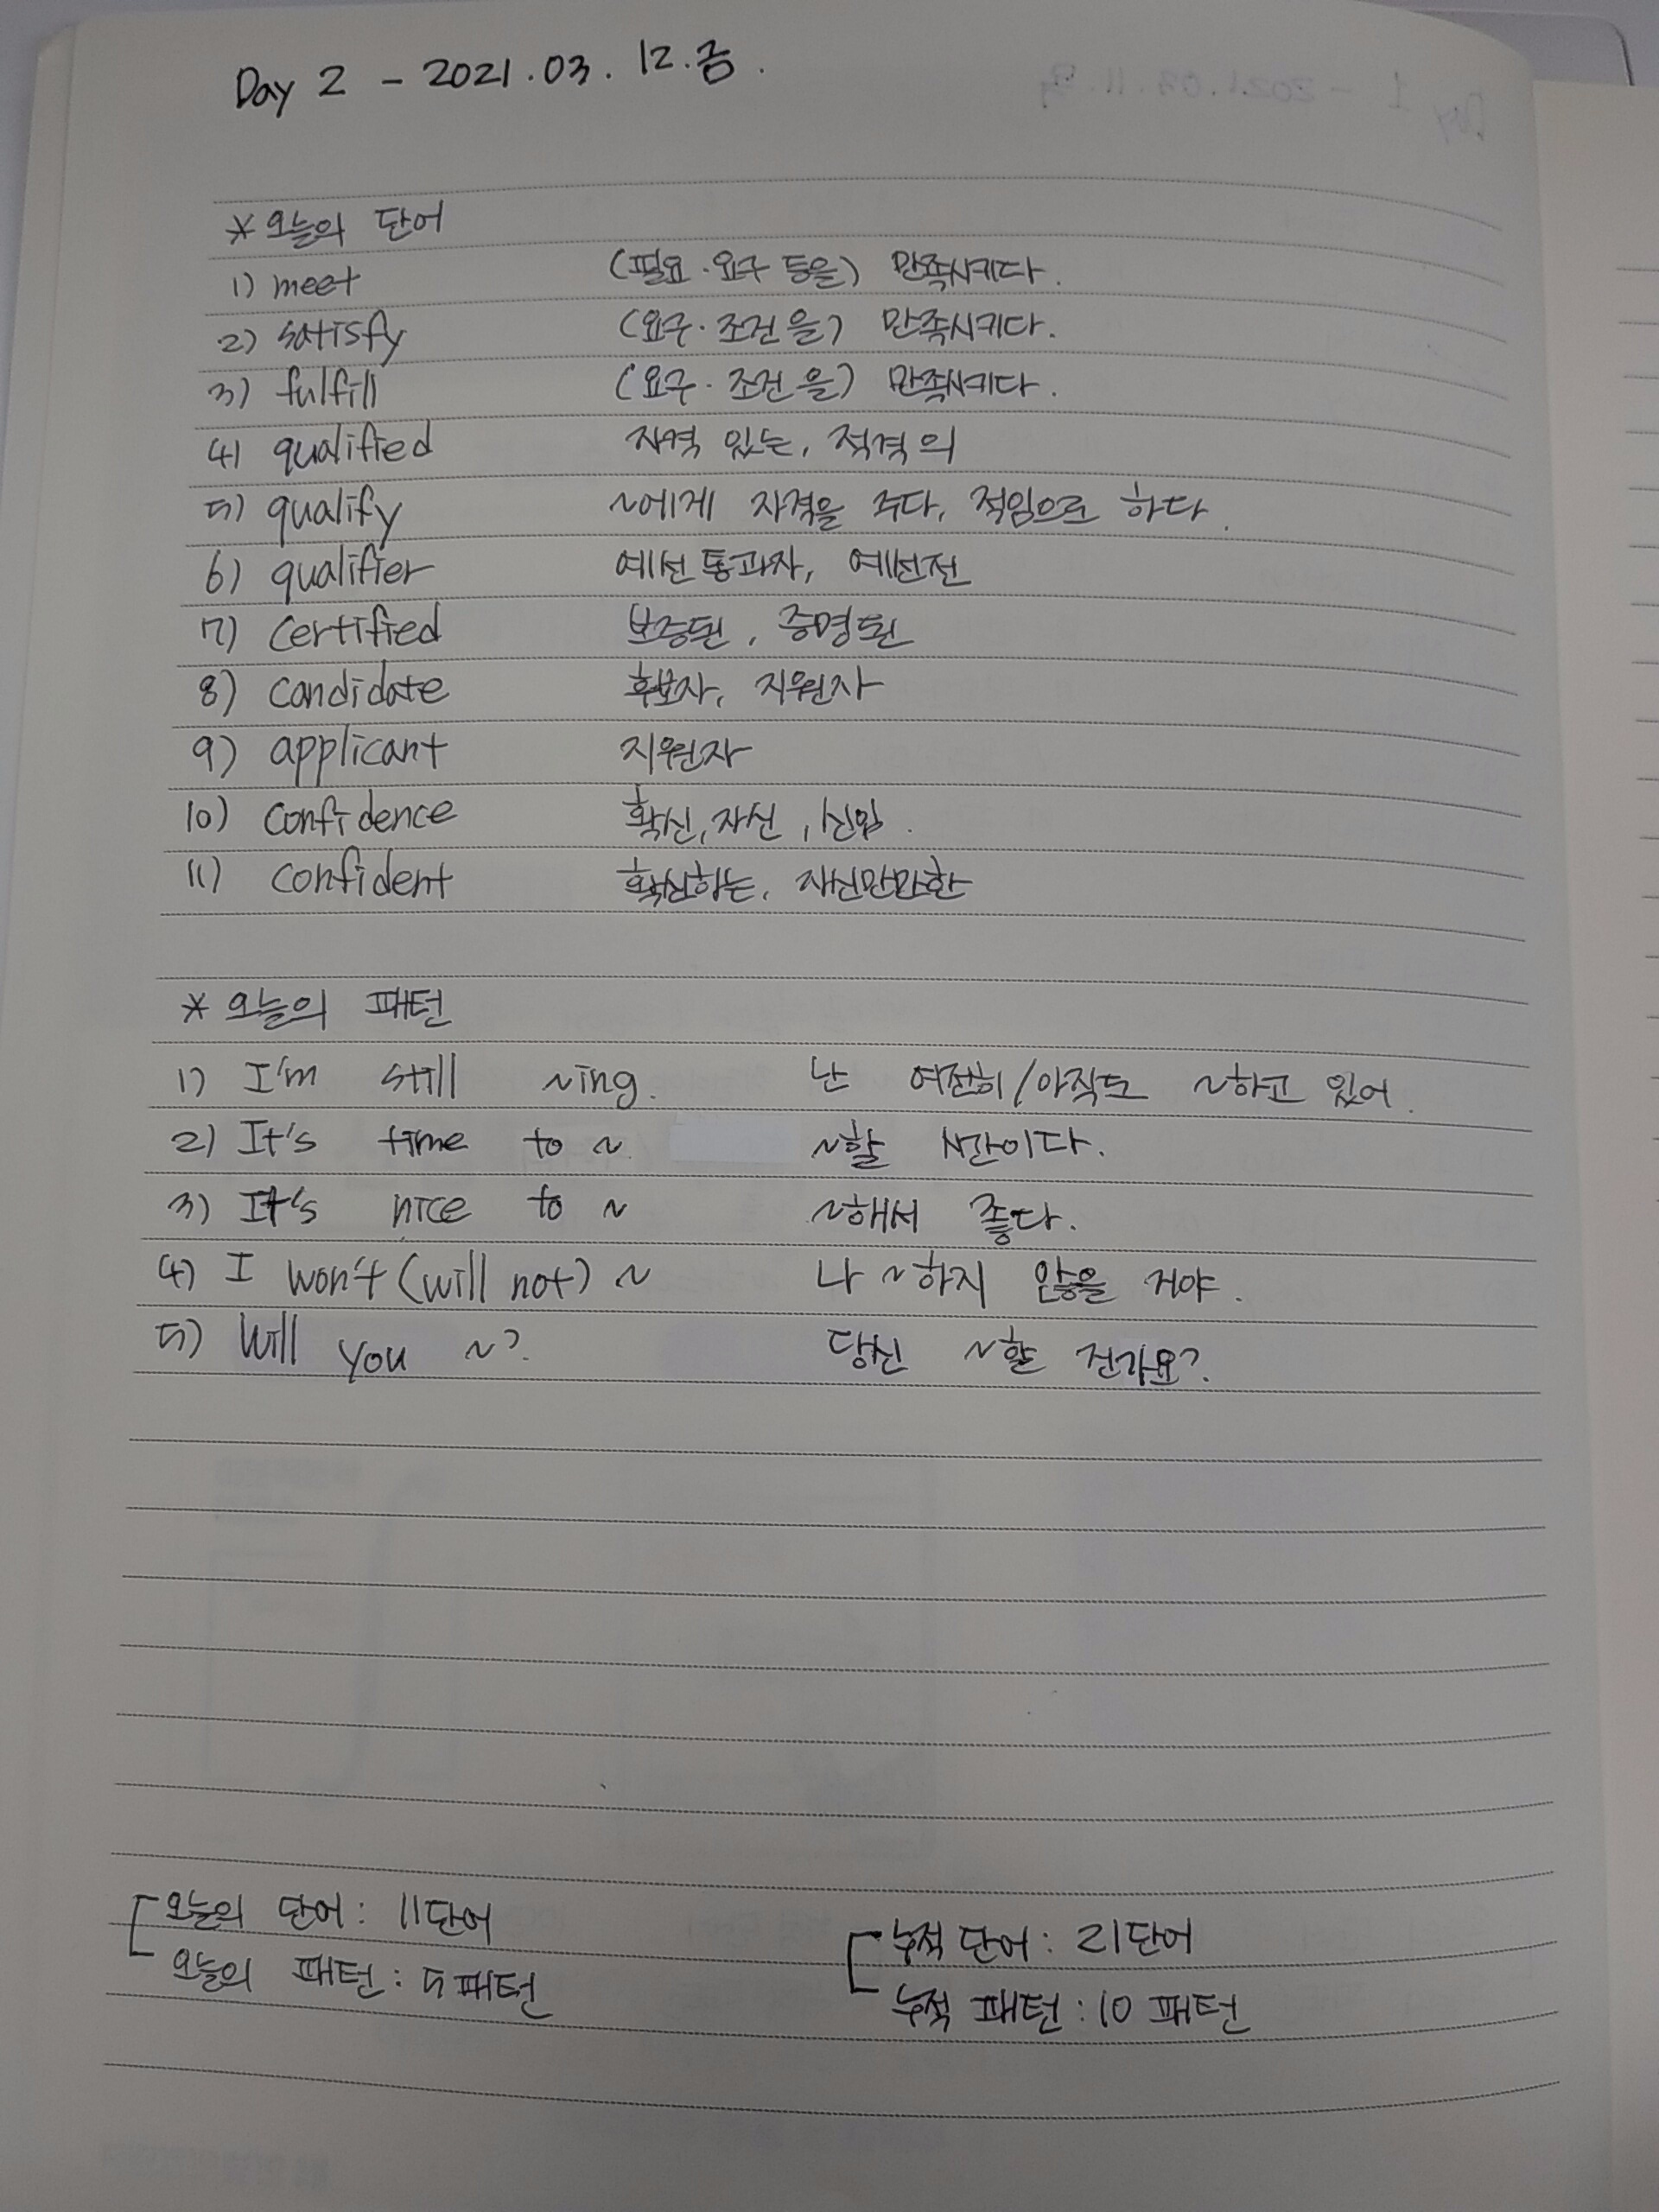 Day 2 - 2021.03.12.금.
* 오늘의 단어
1) meet (필요·요구 등을) 만족시키다.
2) satisfy (요구·조건을) 만족시키다.
3) fulfill (요구·조건을) 만족시키다.
4) qualified 자격 있는, 적격의
5) qualify ~에게 자격을 주다, 적임으로 하다.
6) qualifier 예선통과자, 예선전
7) certified 보증된, 증명된
8) candidate 후보자, 지원자
9) applicant 지원자
10) confidence 확신, 자신, 신임.
11) confident 확신하는, 자신만만한
* 오늘의 패턴
1) I'm still ~ing. 난 여전히/아직도 ~하고 있어.
2) It's time to ~ ~할 시간이다.
3) It's nice to ~ ~해서 좋다.
4) I won't (will not) ~ 나 ~하지 않을 거야.
5) Will you ~? 당신 ~할 건가요?
오늘의 단어: 11단어
오늘의 패턴: 5패턴
누적 단어: 21단어
누적 패턴: 10 패턴